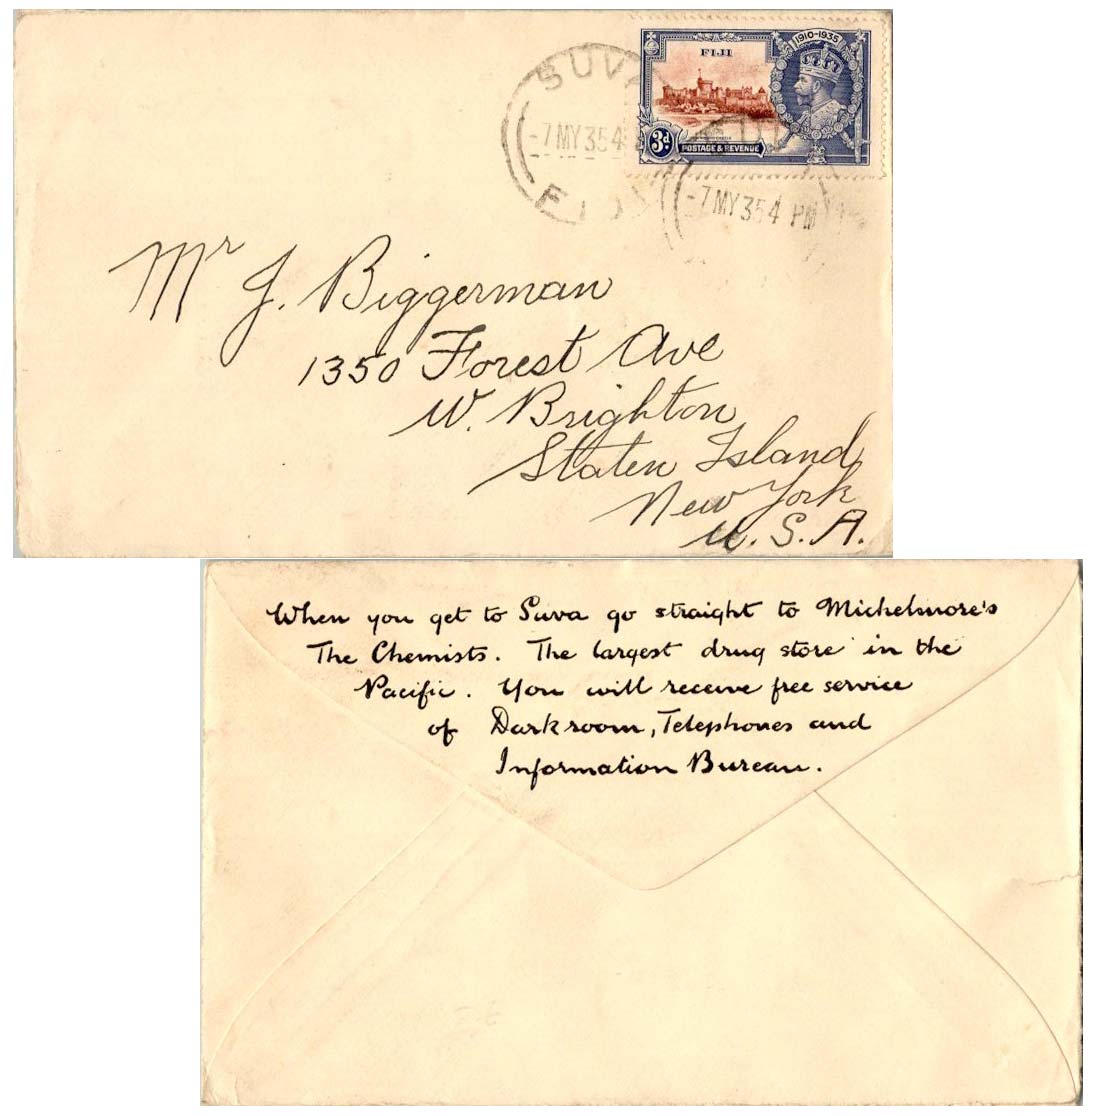 SUVA
-7 MY 35 4
FIJI
FIJI
1910-1935
3d
POSTAGE & REVENUE
-7 MY 35 4 PM
Mr J. Biggerman
1350 Forest Ave
W. Brighton
Staten Island
New York
U. S. A.
When you get to Suva go straight to Michelmore's
The Chemists. The largest drug store in the
Pacific. You will receive free service
of Darkroom, Telephones and
Information Bureau.